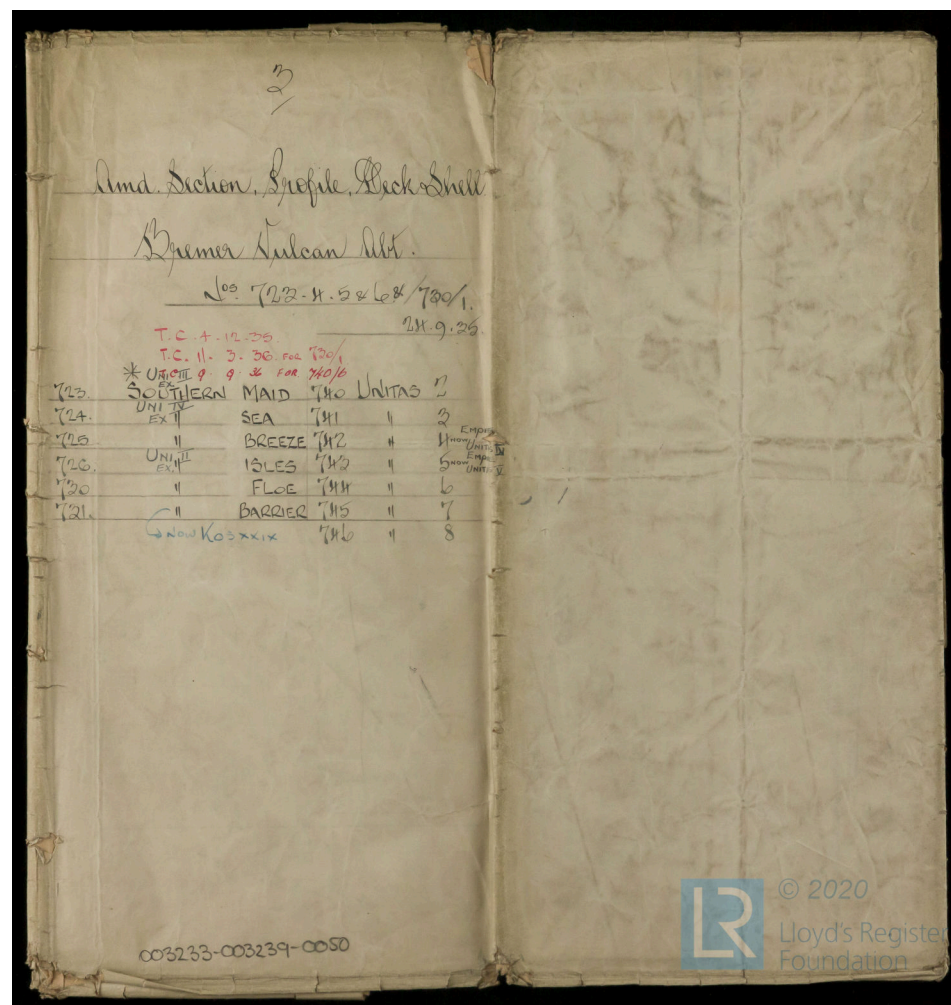 3
Amd. Section, Profile, Deck & Shell
Bremer Vulcan Abt.
Nos. 723-4.5 & 6 & /730/1.
24.9.35.
T.C. 4.12.35
T.C. 11. 3. 36 FOR 730/1
T.C. 9. 9. 36 FOR 740/6
* UNI III
EX
723. SOUTHERN MAID 740 UNITAS 2
UNI IV
724. EX " SEA 741 " 3
725 " BREEZE 742 " 4 NOW UNITAS IV
UNI II
726. EX " ISLES 743 " 5 NOW UNITAS V
730 " FLOE 744 " 6
731. " BARRIER 745 " 7
NOW KOS XXIX 746 " 8
003233-003239-0050
LR
© 2020
Lloyd's Register
Foundation